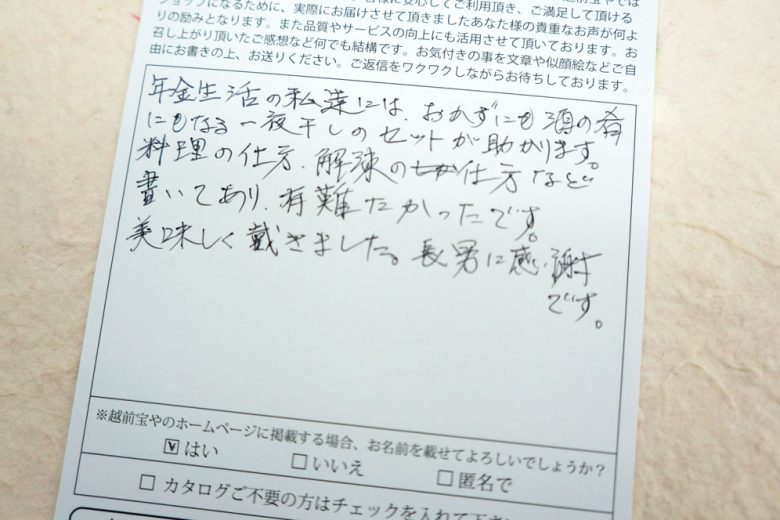 ショップになるために、実際にお届けさせて頂きましたあなた様の貴重なお声が何よ
りの励みとなります。また品質やサービスの向上にも活用させて頂いております。お
召し上がり頂いたご感想など何でも結構です。お気付きの事を文章や似顔絵などご自
由にお書きの上、お送りください。ご返信をワクワクしながらお待ちしております。
年金生活の私達には、おかずにも酒の肴
にもなる一夜干しのセットが助かります。
料理の仕方、解凍の仕方など
書いてあり、有難たかったです。
美味しく戴きました。長男に感謝
です。
※越前宝やのホームページに掲載する場合、お名前を載せてよろしいでしょうか?
はい いいえ 匿名で
カタログご不要の方はチェックを入れて下さい